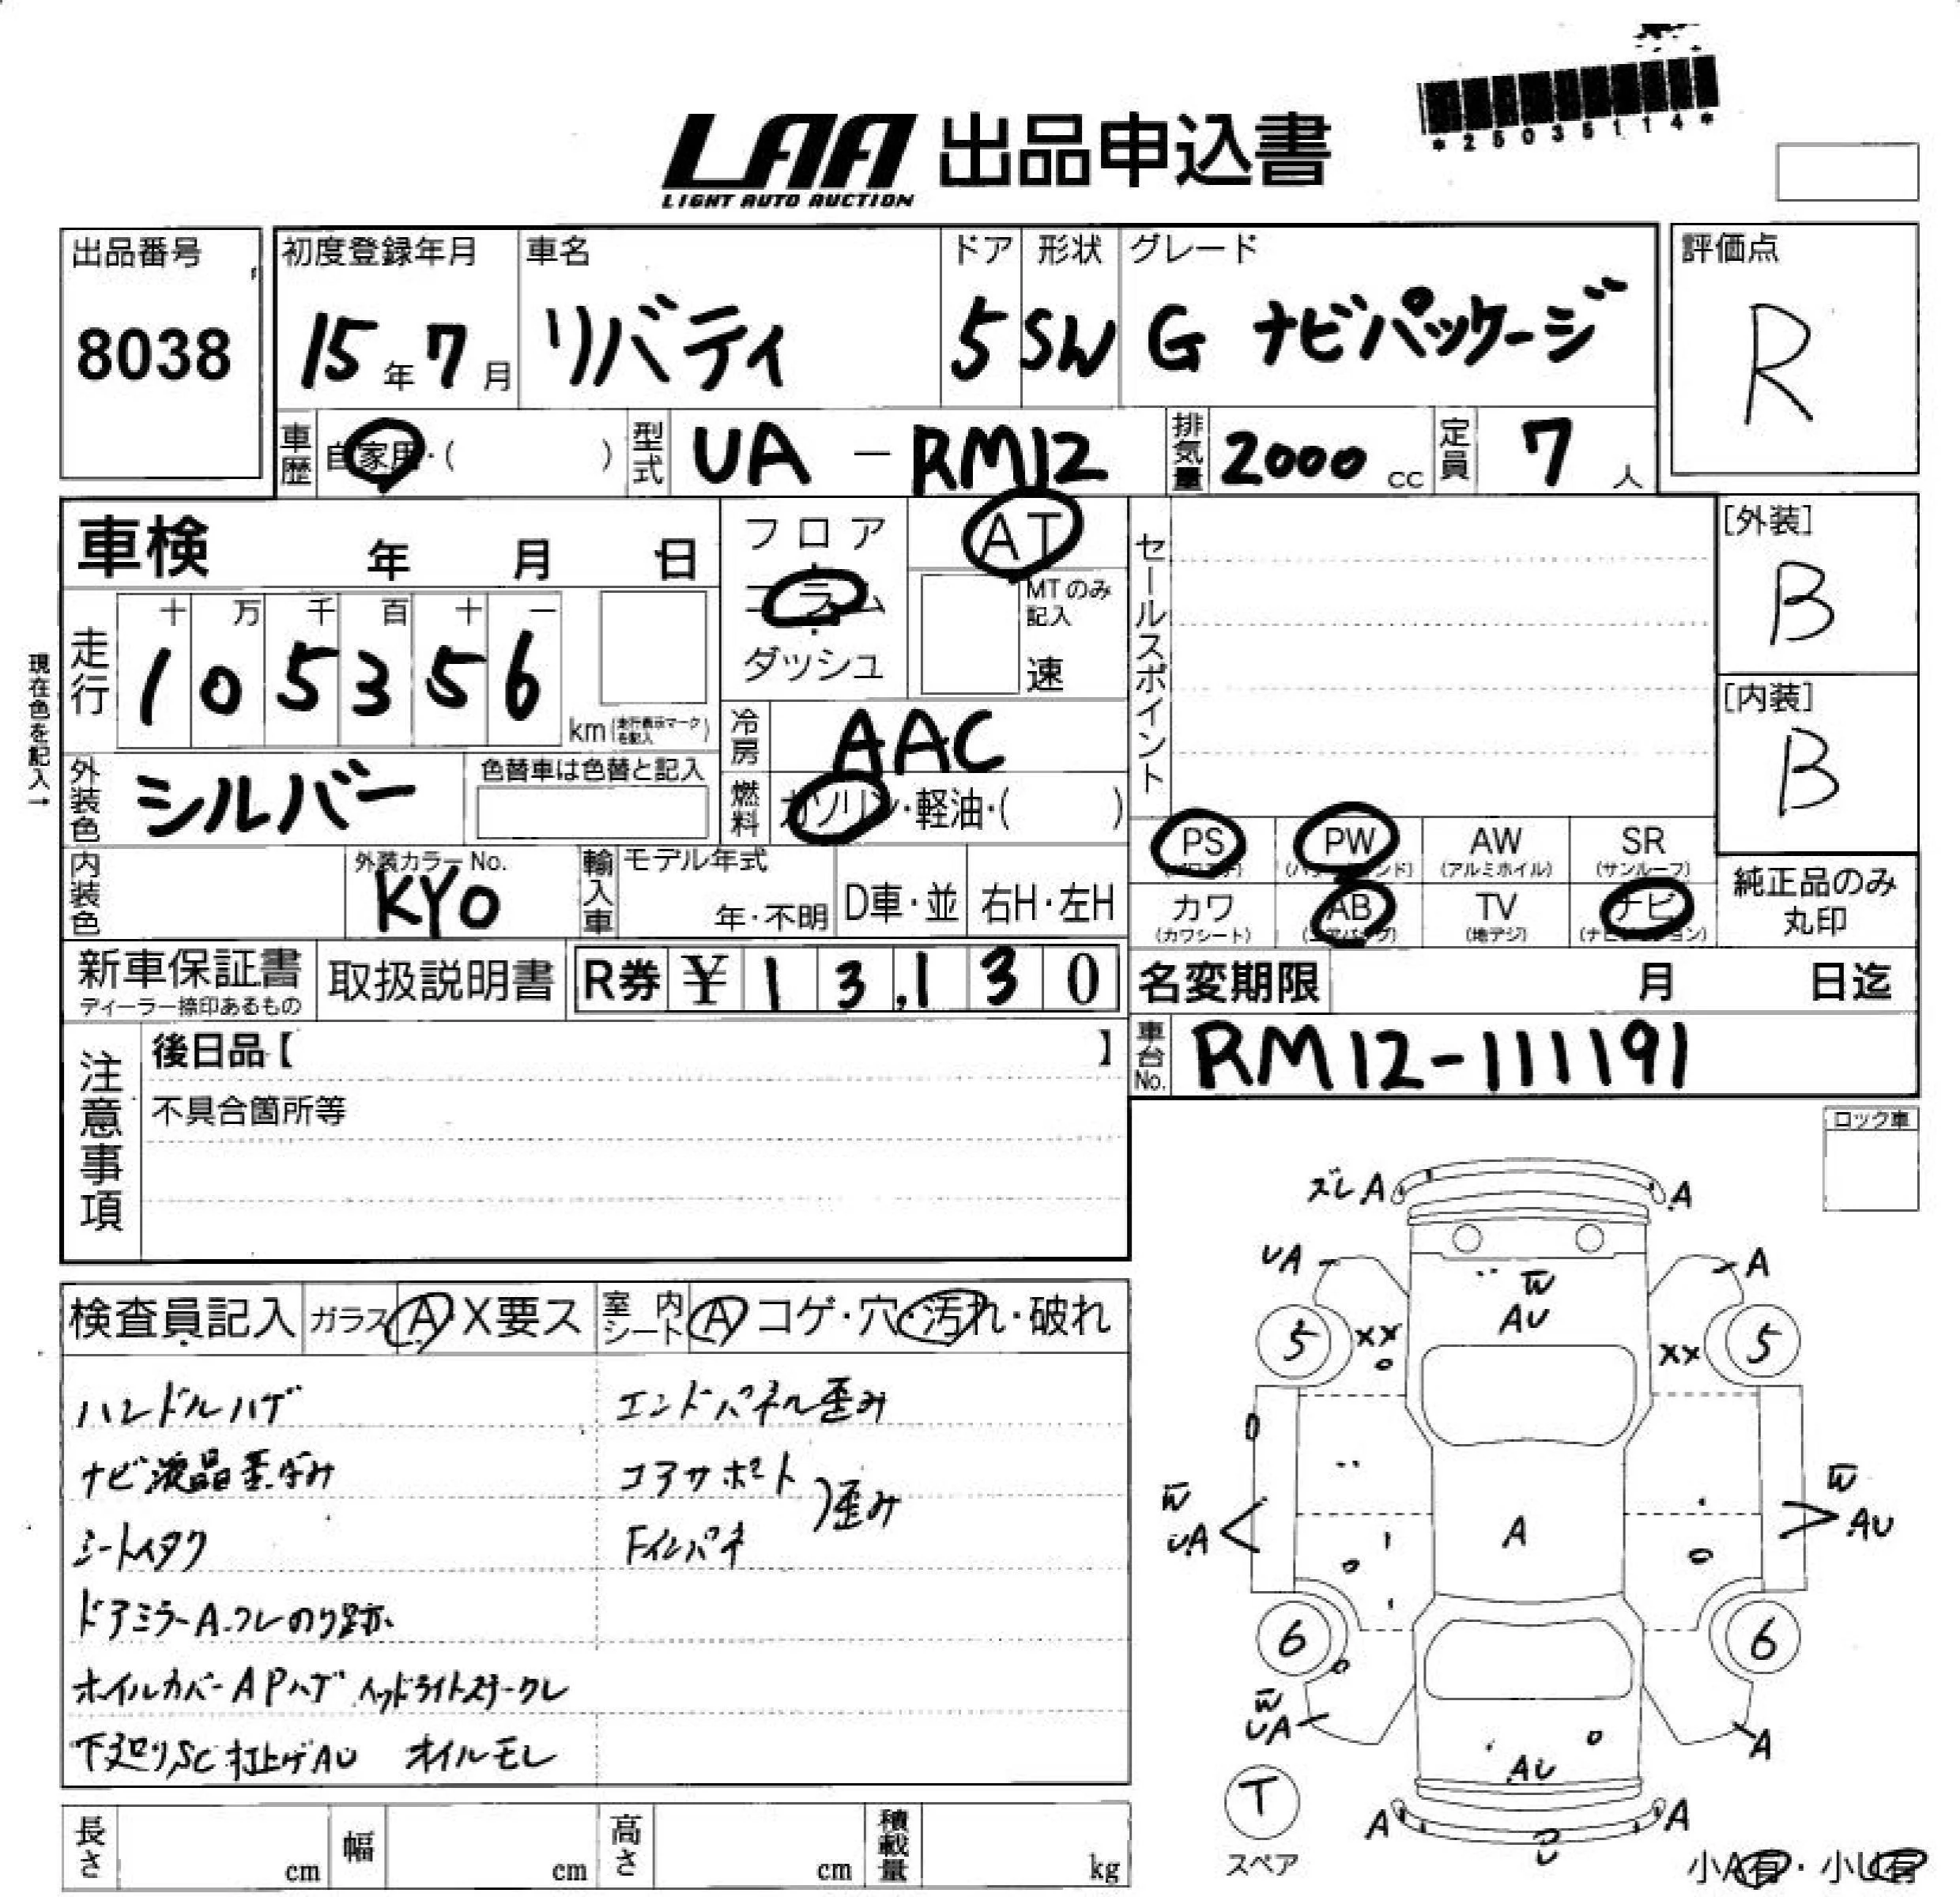 *25035114*
LAA 出品申込書
LIGHT AUTO AUCTION
出品番号 8038
初度登録年月 15年7月
車名 リバティ
ドア 5
形状 SW
グレード G ナビパッケージ
評価点 R
車歴 自家用・( )
型式 UA-RM12
排気量 2000cc
定員 7人
車検 年 月 日
フロア・コラム・ダッシュ
AT
MTのみ記入
速
セールスポイント
[外装] B
[内装] B
現在色を記入→
走行 十万千百十一
105356 km(走行表示マークを記入)
冷房 AAC
外装色 シルバー
色替車は色替と記入
燃料 ガソリン・軽油・( )
PS PW
AW (アルミホイル)
SR (サンルーフ)
内装色
外装カラーNo. KYO
輸入車 モデル年式
年・不明
D車・並
右H・左H
カワ (カワシート)
AB
TV (地デジ)
ナビ
純正品のみ
丸印
新車保証書
ディーラー捺印あるもの
取扱説明書
R券 ¥13,130
名変期限 月 日迄
車台No. RM12-111191
注意事項
後日品【 】
不具合箇所等
ロック車
検査員記入 ガラス A X要ス
室内シート A コゲ・穴・汚れ・破れ
ハンドルハゲ
ナビ液晶
シートイタク
ドアミラーA
ホイルカバーAPハゲ
下廻りSC 打上ゲAU オイルモレ
エンドパネル歪み
コアサポート
Fインパネ
)歪み
ズレ A A
UA A
W
AU
5 XX XX 5
W W
UA A AU
6 6
W
UA A
AU
T
スペア
A A
小A有・小U有
長さ cm
幅 cm
高さ cm
積載量 kg